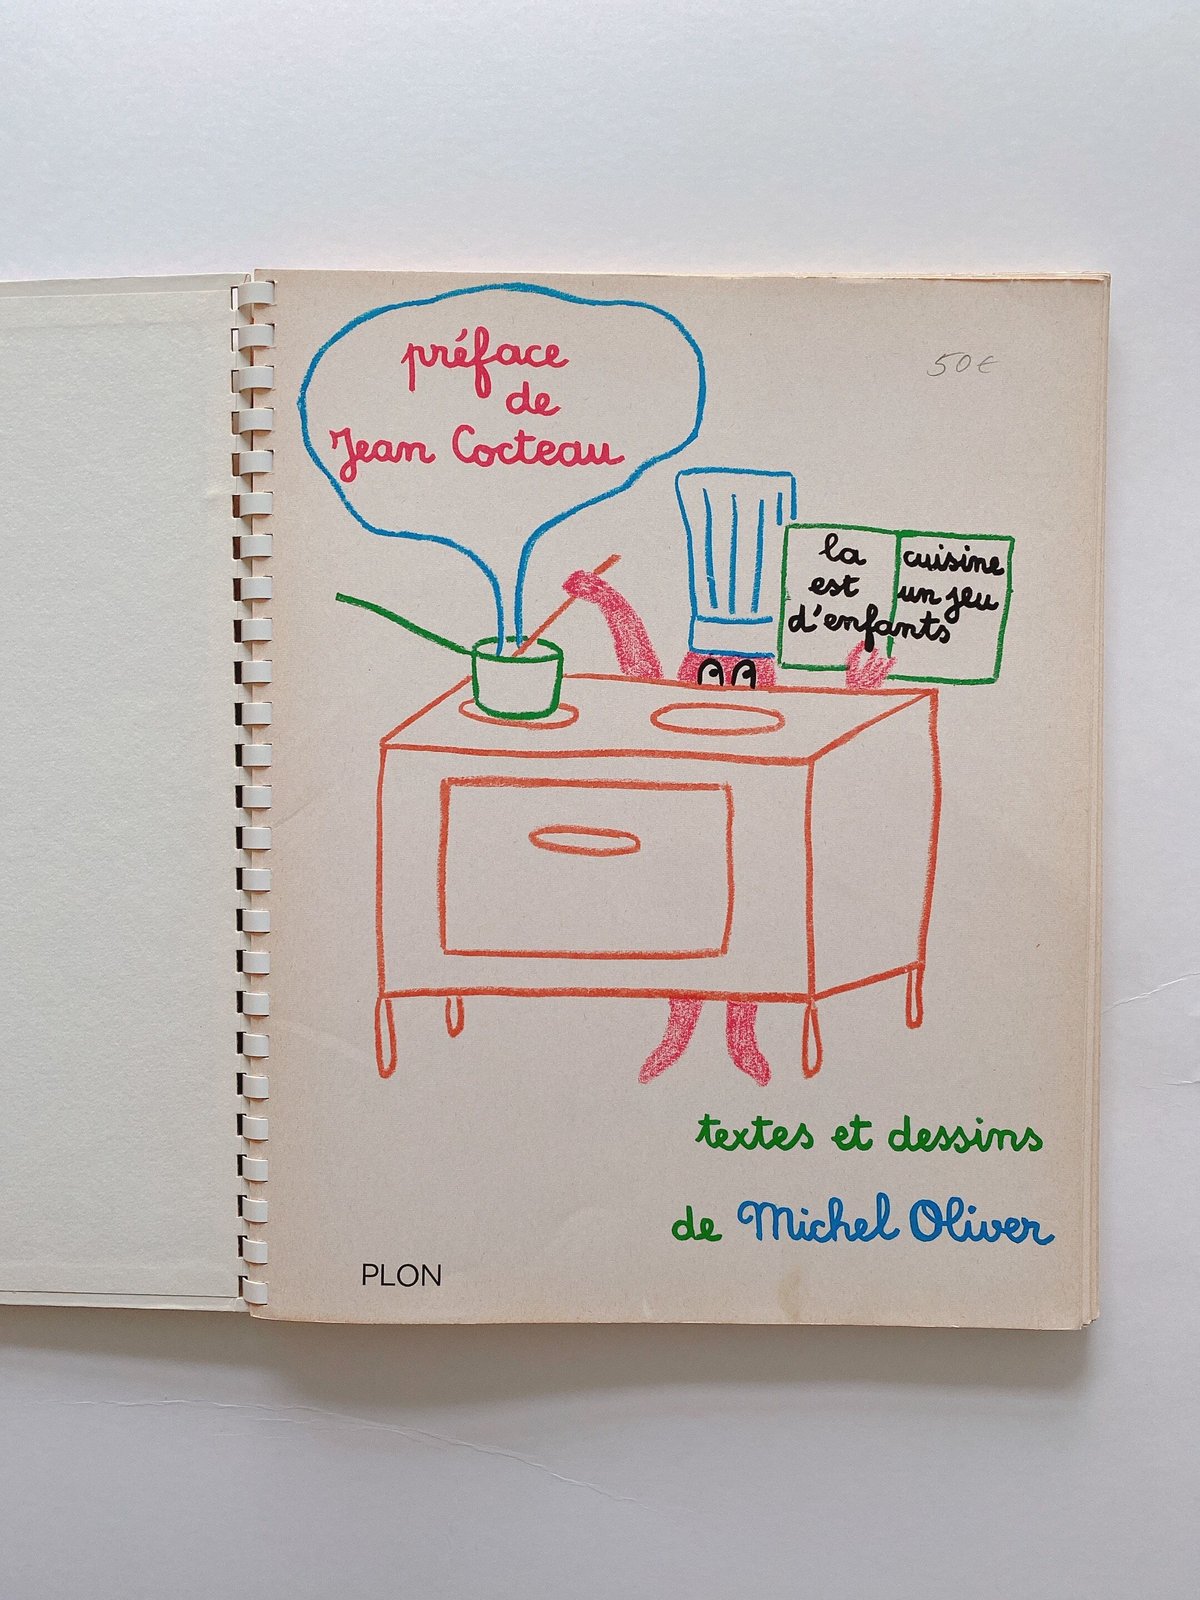 préface
de
Jean Cocteau
50€
la cuisine
est un jeu
d'enfants
textes et dessins
de Michel Oliver
PLON